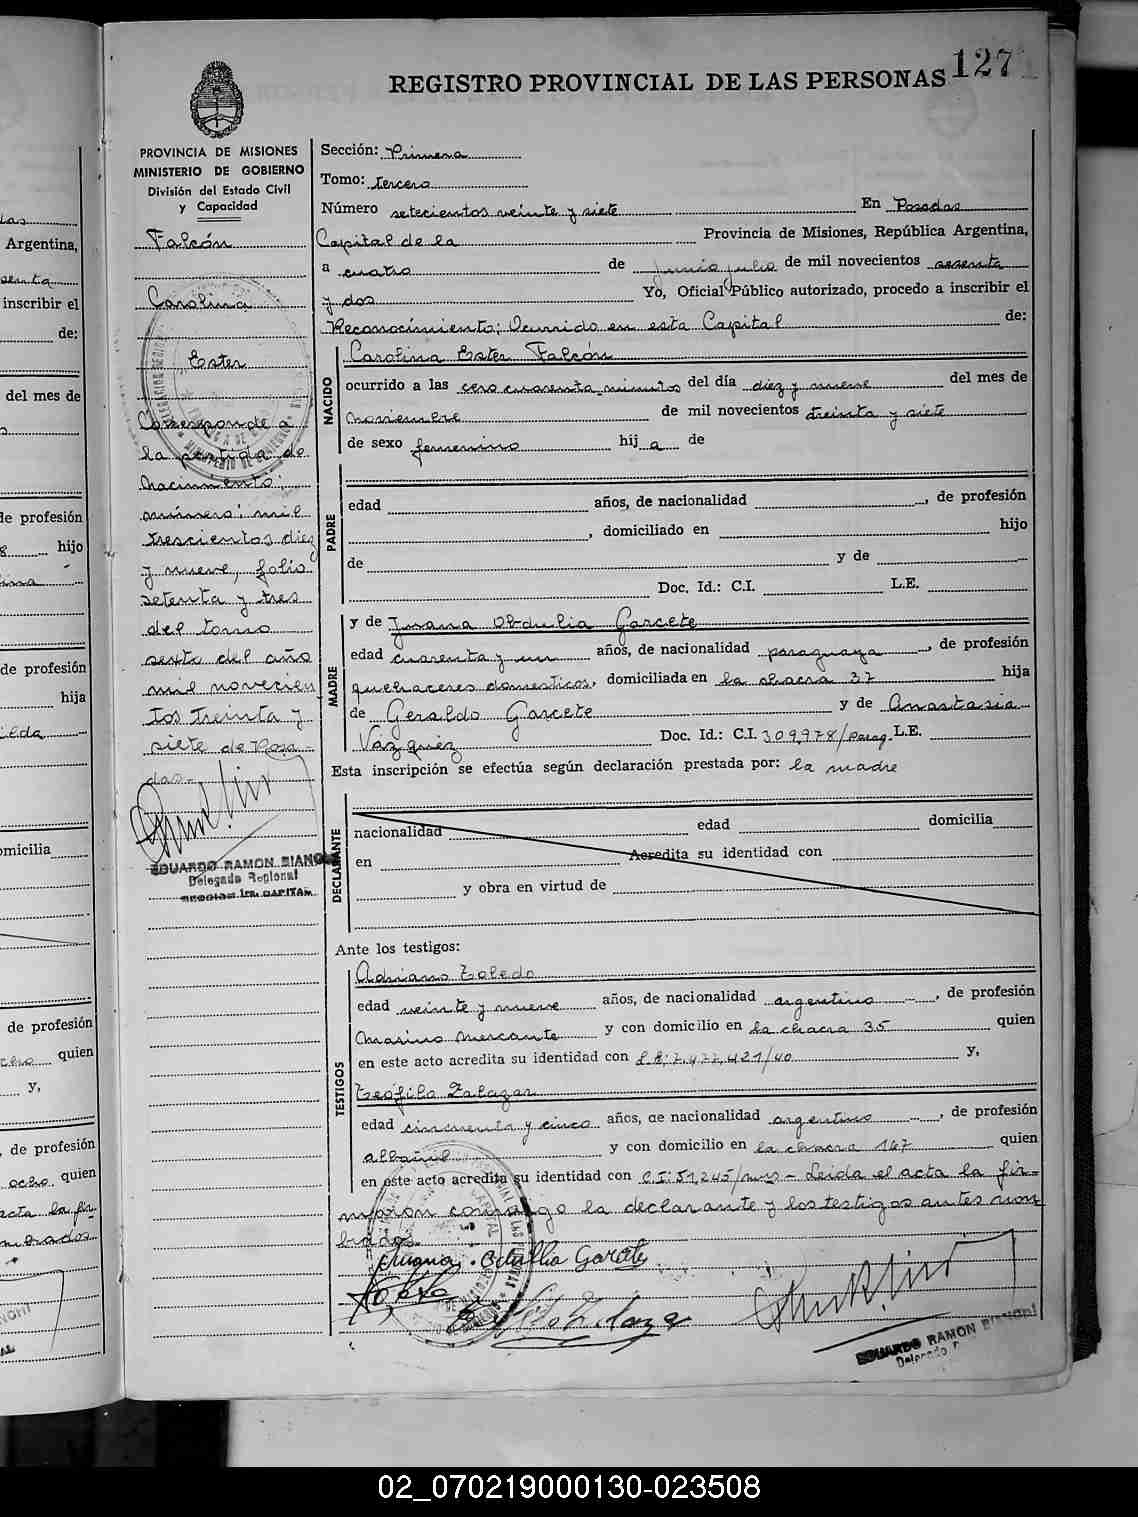 127
REGISTRO PROVINCIAL DE LAS PERSONAS
PROVINCIA DE MISIONES
MINISTERIO DE GOBIERNO
División del Estado Civil
y Capacidad
Falcón
Carolina
Ester
Corresponde a
la partida de
nacimiento;
número; mil
trescientos diez
y nueve, folio
setenta y tres
del tomo
sexto del año
mil novecien
tos treinta y
siete de Posa
das.-
EDUARDO RAMON BIANCHI
Delegado Regional
SECCION 1ra. CAPITAL
Sección: Primera
Tomo: tercero
Número setecientos veinte y siete En Posadas
Capital de la Provincia de Misiones, República Argentina,
a cuatro de junio julio de mil novecientos sesenta
y dos Yo, Oficial Público autorizado, procedo a inscribir el
Reconocimiento; Ocurrido en esta Capital de:
NACIDO
Carolina Ester Falcón
ocurrido a las cero cuarenta minutos del día diez y nueve del mes de
noviembre de mil novecientos treinta y siete
de sexo femenino hij a de
PADRE
edad años, de nacionalidad , de profesión
, domiciliado en hijo
de y de
Doc. Id.: C.I. L.E.
MADRE
y de Juana Obdulia Garcete
edad cuarenta y un años, de nacionalidad paraguaya , de profesión
quehaceres domesticos, domiciliada en la chacra 37 hija
de Geraldo Garcete y de Anastasia
Vázquez Doc. Id.: C.I. 309,978/parag. L.E.
Esta inscripción se efectúa según declaración prestada por: la madre
DECLARANTE
nacionalidad edad domicilia
en Acredita su identidad con
y obra en virtud de
Ante los testigos:
TESTIGOS
Adriano Toledo
edad veinte y nueve años, de nacionalidad argentino , de profesión
Marino Mercante y con domicilio en la chacra 35 quien
en este acto acredita su identidad con L.E; 7,477,421/40 y,
Teófilo Zalazar
edad cincuenta y cinco años, de nacionalidad argentino , de profesión
albañil y con domicilio en la chacra 147 quien
en este acto acredita su identidad con C.I: 51,245/mis - Leida el acta la fir-
maron conmigo la declarante y los testigos antes nom
brados.
Juana Obdulia Garcete
EDUARDO RAMON BIANCHI
Delegado
Argentina,
inscribir el
de:
del mes de
de profesión
hijo
de profesión
hija
domicilia
de profesión
quien
y,
, de profesión
ocho quien
acta la fir-
02_070219000130-023508